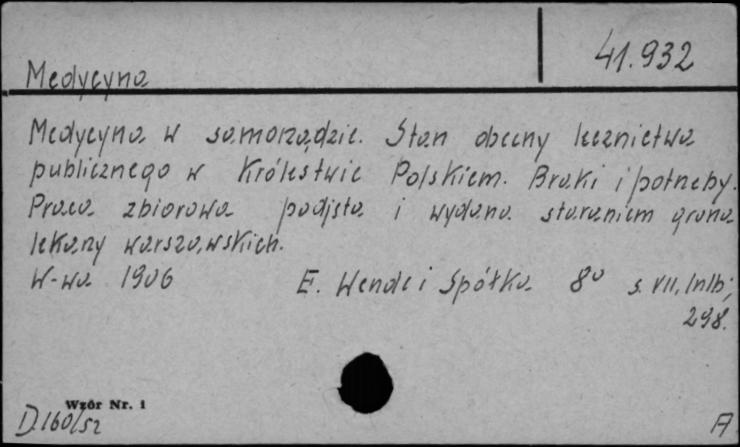 41.932
Medycyna
Medycyna w samorządzie. Stan obecny lecznictwa
publicznego w Królestwie Polskiem. Braki i potrzeby.
Praca zbiorowa podjęta i wydana staraniem grona
lekarzy warszawskich.
W-wa 1906 E. Wende i Spółka 8° s. VII, 1nlb;
298.
Wzór Nr. 1
D.160/52
A